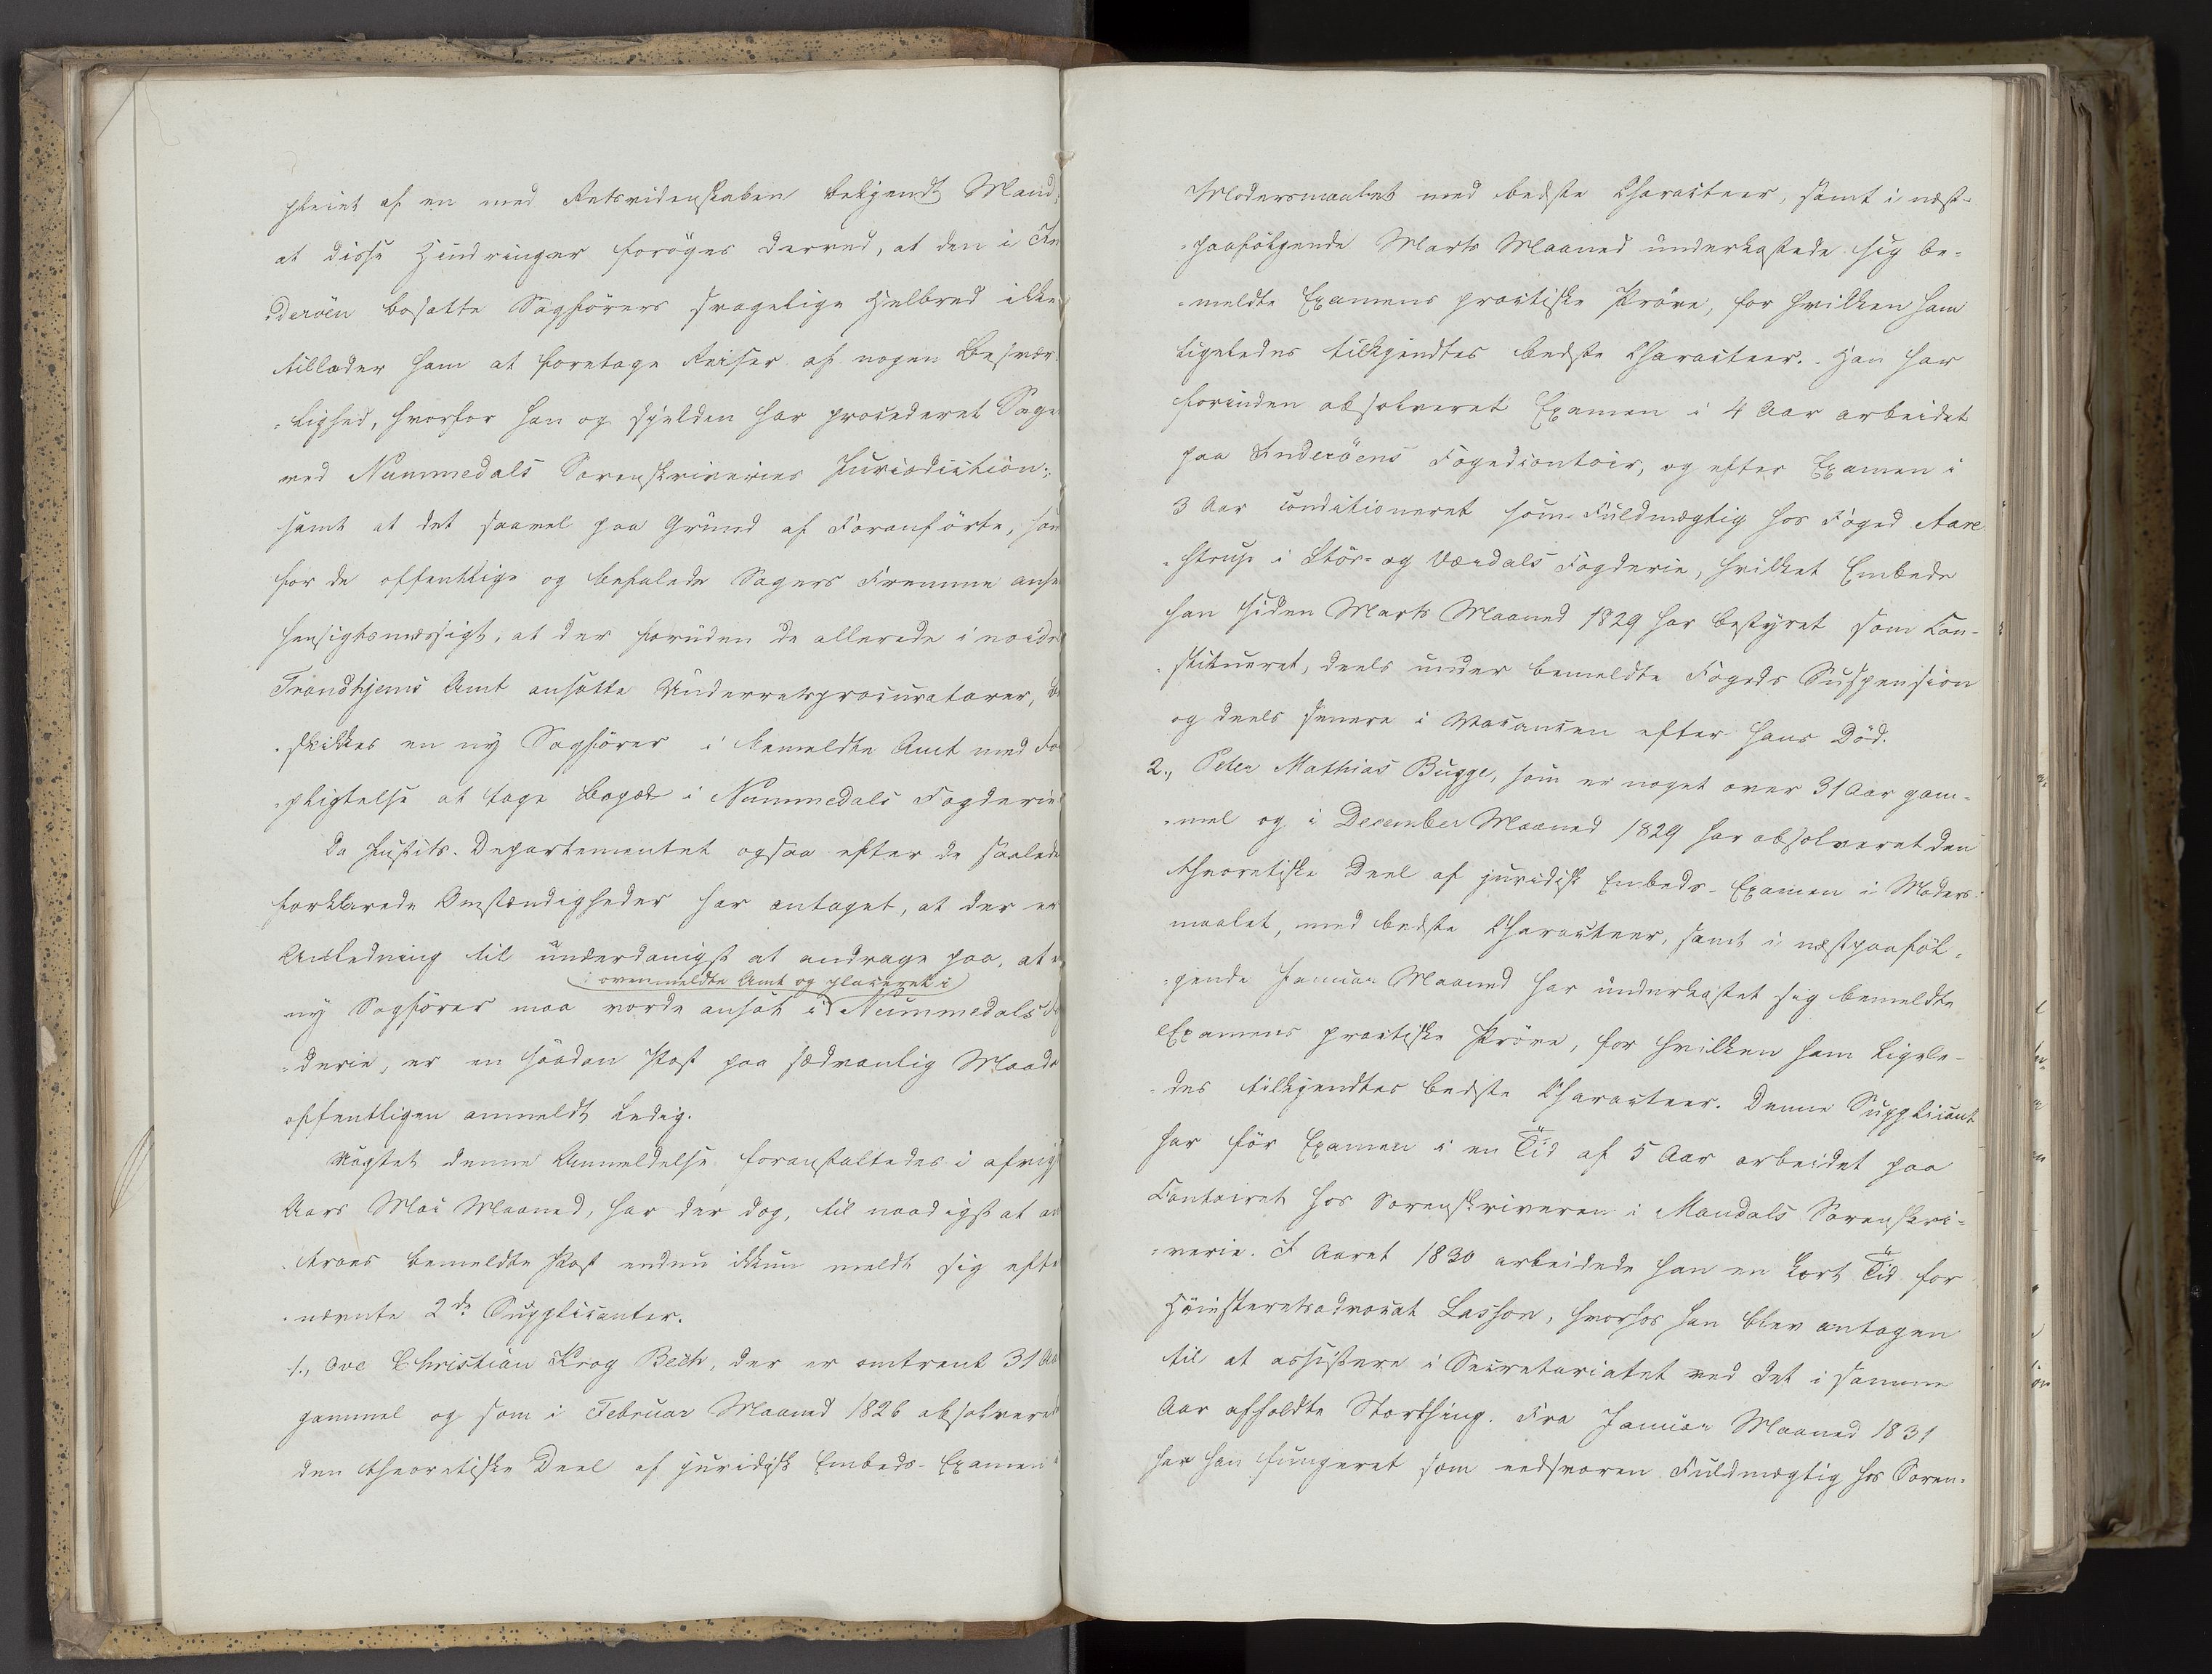 pleiet af en med Retsvidenskaben bekjendt Mand,
at disse Hindringer forøges derved, at den i In
-derøen bosatte Sagførers svagelige Helbred ikke
tillader ham at foretage Reiser af nogen Besvær-
-lighed, hvorfor han og sjelden har procederet Sage
ved Nummedals Sorenskriveries Jurisdiction;
samt at det saavel paa Grund af Foranførte, som
for de offentlige og befalede Sagers Fremme anse
hensigtsmæssigt, at der foruden de allerede i nordre
Trondhjems Amt ansatte Underretsprocuratorer, be
-skikkes en ny Sagfører i bemeldte Amt med For
-pligtelse at tage Bopæl i Nummedals Fogderie
Da Justits-Departementet ogsaa efter de saalede
forklarede Omstændigheder har antaget, at der er
Anledning til underdanigst at andrage paa, at e
i ovenmeldte Amt og placeret i
ny Sagfører maa vorde ansat i Nummedals Fo
-derie, er en saadan Post paa sædvanlig Maade
offentligen anmeldt ledig.
Uagtet denne Anmeldelse foranstaltedes i afvig
Aars Mai Maaned, har der dog, til naadigst at an
-troes bemeldte Post endnu ikkun meldt sig efte
-nævnte 2de Supplicanter.
1., Ove Christian Krog Bech, der er omtrent 31 Aar
gammel og som i Februar Maaned 1826 absolvered
den theoretiske Deel af juridisk Embeds-Examen i
Modersmaalet med bedste Characteer, samt i næst-
-paafølgende Marts Maaned underkastede sig be-
-meldte Examens practiske Prøve, for hvilken ham
ligeledes tilkjendtes bedste Characteer. Han har
forinden absolveret Examen i 4 Aar arbeidet
paa Inderøens Fogedcontoir, og efter Examen i
3 Aar conditioneret som Fuldmægtig hos Foged Aare-
-strup i Stør- og Værdals Fogderie, hvilket Embede
han siden Marts Maaned 1829 har bestyret som Con-
-stitueret, deels under bemeldte Fogeds Suspension
og deels senere i Vacancen efter hans Død.
2., Peter Mathias Bugge, som er noget over 31 Aar gam-
-mel og i December Maaned 1829 har absolveret den
theoretiske Deel af juridisk Embeds-Examen i Moders-
maalet, med bedste Characteer, samt i næstpaaføl-
-gende Januar Maaned har underkastet sig bemeldte
Examens practiske Prøve, for hvilken ham ligele-
-des tilkjendtes bedste Characteer. Denne Supplicant
har før Examen i en Tid af 5 Aar arbeidet paa
Contoiret hos Sorenskriveren i Mandals Sorenskri-
-verie. I Aaret 1830 arbeidede han en kort Tid for
Høiesteretsadvocat Lasson, hvorhos han blev antagen
til at assistere i Secretariatet ved det i samme
Aar afholdte Storthing. Fra Januar Maaned 1831
har han fungeret som eedsvoren Fuldmægtig hos Soren-